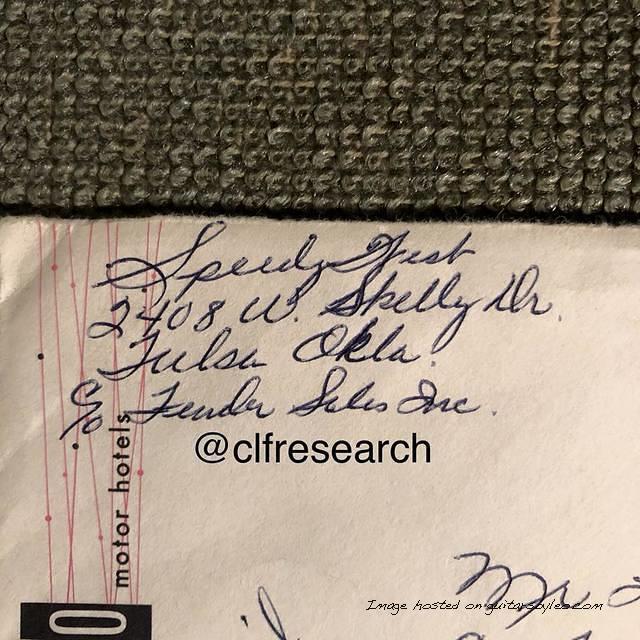 Speedy West
2408 W. Skelly Dr.
Tulsa Okla.
c/o Fender Sales Inc.
@clfresearch
motor hotels
Mr.
Image hosted on guitarstyles.com